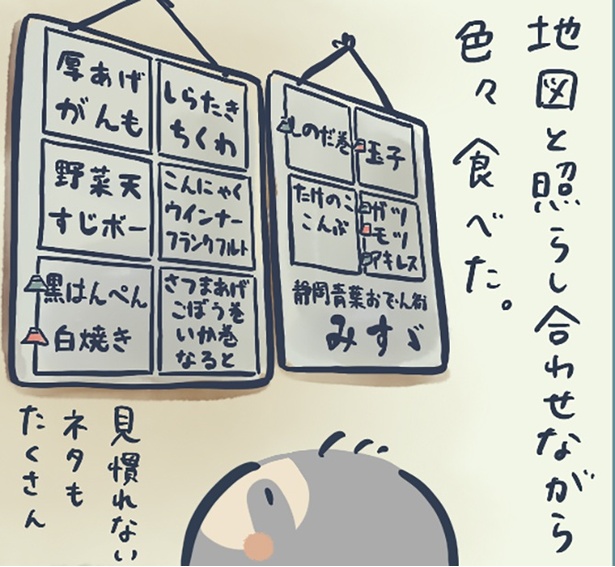 地図と照らし合わせながら
色々食べた。
しのだ巻
玉子
たけのこ
こんぶ
ガツ
モツ
アキレス
静岡青葉おでん街
みすゞ
厚あげ
がんも
しらたき
ちくわ
野菜天
すじボー
こんにゃく
ウインナー
フランクフルト
黒はんぺん
白焼き
さつまあげ
ごぼう巻
いか巻
なると
見慣れない
ネタも
たくさん